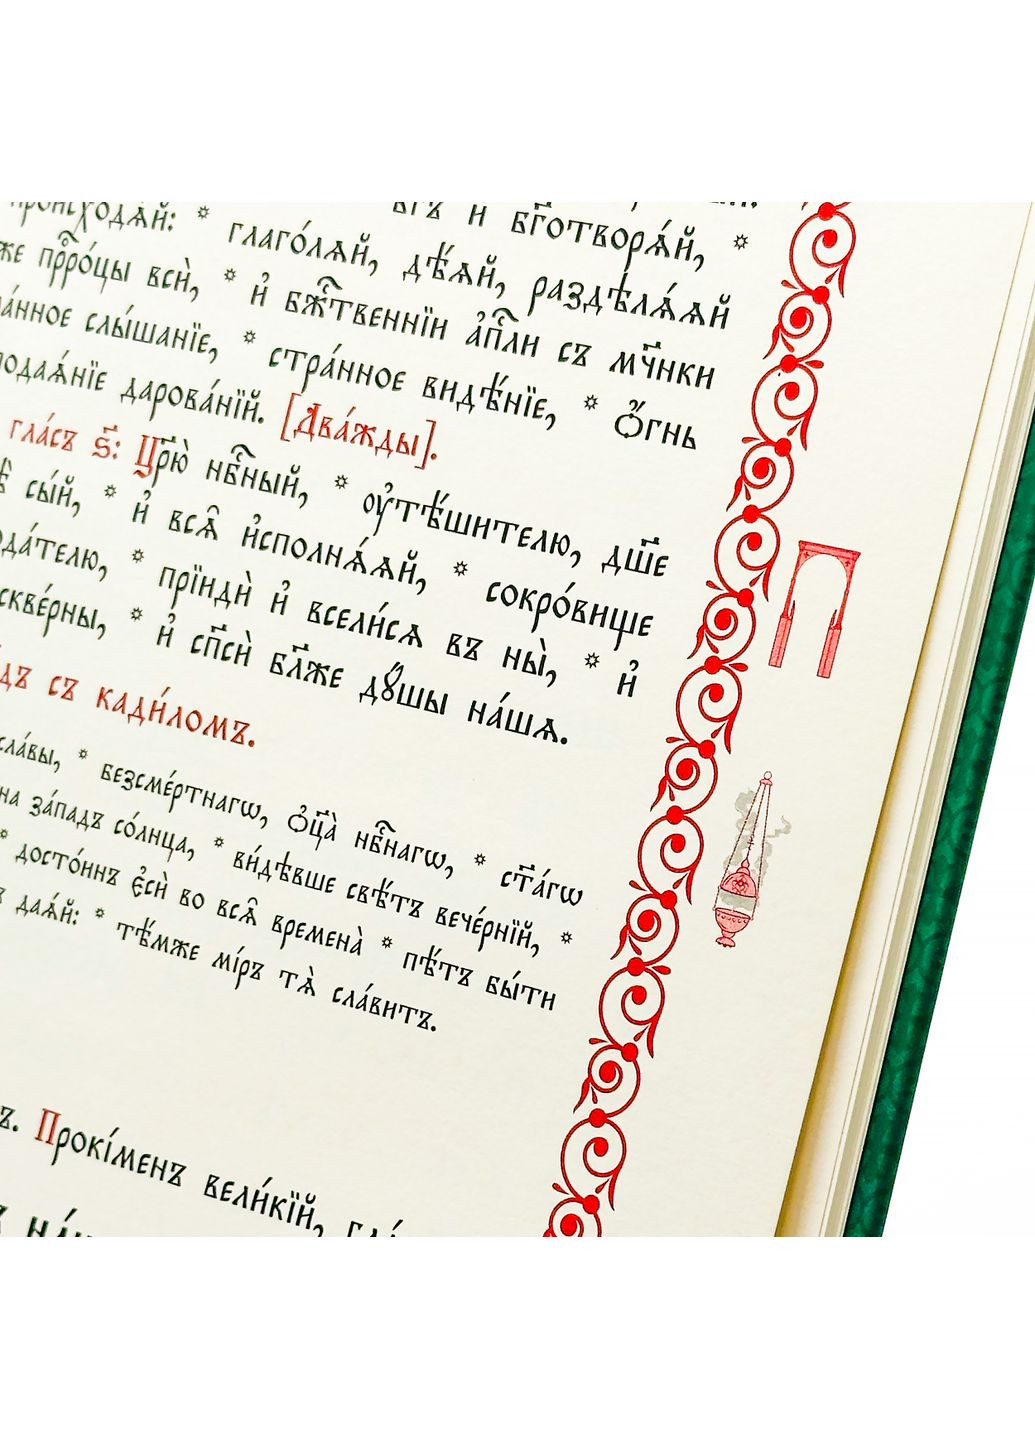 происходѧ́й: * бг҃ъ и҆ бг҃отворѧ́й, *
глаго́лѧй, дѣ́ѧй, раздѣлѧ́ѧй
же прⷪ҇ро́цы всѝ, * и҆ бж҃е́ственнїи а҆пⷭ҇ли съ мч҃нки
ра́нное слы́шанїе, * стра́нное видѣ́нїе, * ѻ҆́гнь
подаѧ́нїе дарова́нїй. [Два́жды].
гла́съ ѕ҃: Цр҃ю̀ нбⷭ҇ный, * ᲂу҆тѣ́шителю, дш҃е
сы́й, * и҆ всѧ̑ и҆сполнѧ́ѧй, * сокро́вище
пода́телю, * прїидѝ и҆ всели́сѧ въ ны̀, * и҆
скве́рны, * и҆ сп҃сѝ бл҃же дꙋ́шы на́шѧ.
съ кади́ломъ.
сла́вы, * безсме́ртнагѡ, ѻ҆ц҃а̀ нбⷭ҇нагѡ, * ст҃а́гѡ
на за́падъ со́лнца, * ви́дѣвше свѣ́тъ вече́рнїй, *
* досто́инъ є҆сѝ во всѧ̑ времена̀ * пѣ́тъ бы́ти
даѧ́й: * тѣ́мже мі́ръ тѧ̀ сла́витъ.
Прокі́менъ вели́кїй,